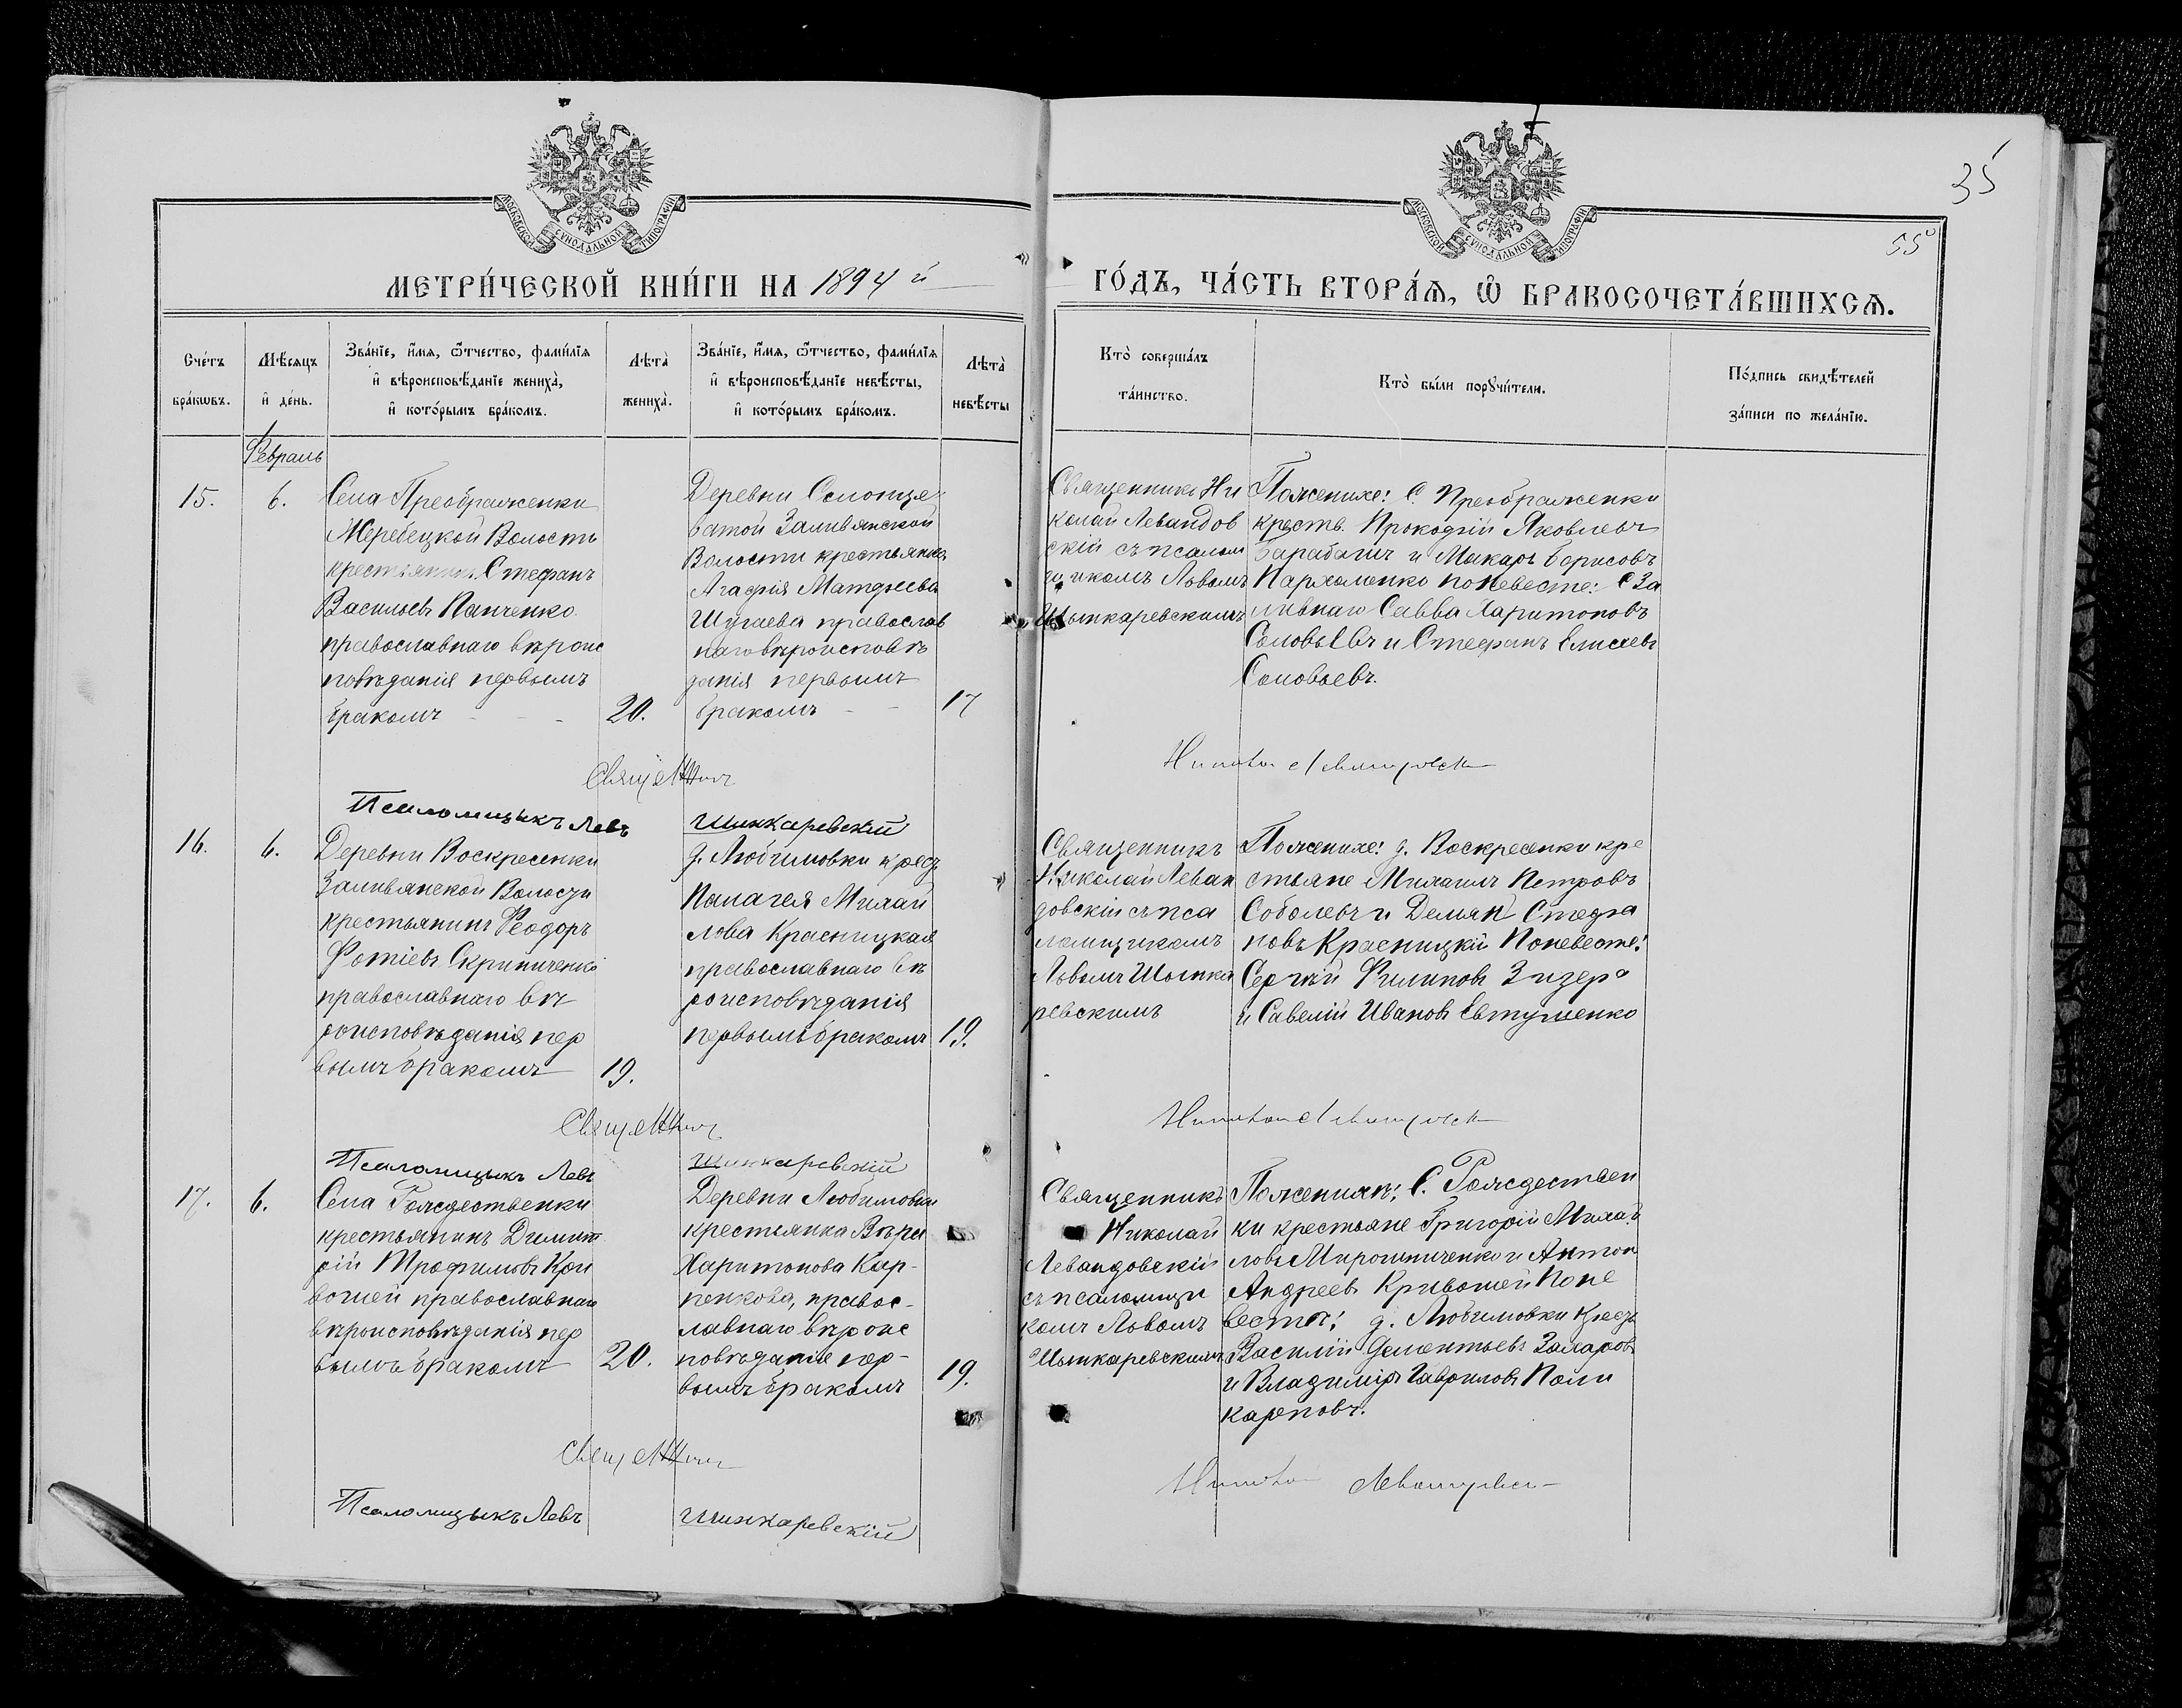 35
55
МОСКОВСКОЙ СѴНОДАЛЬНОЙ ТИПОГРАФІИ
МОСКОВСКОЙ СѴНОДАЛЬНОЙ ТИПОГРАФІИ
МЕТРИ́ЧЕСКОЙ КНИ́ГИ НА 1894 й
ГО́ДЪ, ЧА́СТЬ ВТОРА́Ѧ, Ѽ БРАКОСОЧЕТА́ВШИХСѦ.
Сче́тъ
бра́кѡвъ.
Мѣ́сяцъ
и҆ де́нь.
Зва́нїе, и҆́мя, ѻ҆́тчество, фами́лїя
и҆ вѣроисповѣ́данїе жениха̀,
и҆ кото́рымъ бра́комъ.
Лѣта̀
жениха̀.
Зва́нїе, и҆́мя, ѻ҆́тчество, фами́лїя
и҆ вѣроисповѣ́данїе невѣ́сты,
и҆ кото́рымъ бра́комъ.
Лѣта̀
невѣ́сты
Кто̀ соверша́лъ
та́инство.
Кто̀ бы́ли порꙋчи́тели.
По́дпись свидѣ́телей
за́писи по жела́нїю.
Февраль
15.
6.
Села Преображенки
Жеребецкой Волости
крестьянинъ Стефанъ
Васильевъ Панченко
православнаго вѣроис
повѣданія первымъ
бракомъ - - -
20.
Деревни
ватой Заливянской
Волости крестьянка
Агафія Матфеева
Шугаева православ
наго вѣроисповѣ
данія первымъ
бракомъ - -
17
Священникъ Ни
колай Левандов
скій съ псалом
щикомъ Львомъ
Шынкаревскимъ
По женихе: С. Преображенки
крестьяне Прокофій Яковлевъ
Барабашъ и Макаръ Борисовъ
Пархоменко по невесте: С За
ливнаго Савва Харитоновъ
Соловьевъ и Стефанъ Елисеевъ
Соловьевъ.
Священникъ
Николай Левандовск
Псаломщыкъ Левъ
Шинкаревскій
16.
6.
Деревни Воскресенки
Заливянской Волости
крестьянинъ Феодоръ
Фотіевъ Скрипиченко
православнаго вѣ
роисповѣданія пер
вымъ бракомъ
19.
д. Любимовки крест.
Палагея Михай
лова Красницкая
православнаго вѣ
роисповѣданія
первымъ бракомъ
19.
Священникъ
Николай Леван
довскій съ пса
ломщикомъ
Львомъ Шынка
ревскимъ
По женихе: д. Воскресенки кре
стьяне Михаилъ Петровъ
Соболевъ и Демянъ Стефа
новъ Красницкій По невесте:
Сергѣй Филиповъ
и Савелій Ивановъ Евтушенко
Священникъ
Николай Левандовск
Псаломщыкъ Левъ
Шинкаревскій
17.
6.
Села Рождественки
крестьянинъ Димит
рій Трофимовъ Кри
вошей православнаго
вѣроисповѣданія пер
вымъ бракомъ
20.
Деревни Любимовки
крестьянка Вѣра
Харитонова Кар-
пенкова, правос-
лавнаго вѣроис
повѣданія пер-
вымъ бракомъ
19.
Священникъ
Николай
Левандовскій
съ псаломщи
комъ Львомъ
Шынкаревскимъ
По женихѣ: С. Рождествен
ки крестьяне Григорій Михай
ловъ Мирошниченко и Антонъ
Андреевъ Кривошей По не
вестѣ: д. Любимовки крест.
Василій Дементьевъ Захаровъ
и Владиміръ Гавриловъ Поли
карповъ.
Священникъ
Николай Левандовск
Псаломщыкъ Левъ
Шинкаревскій